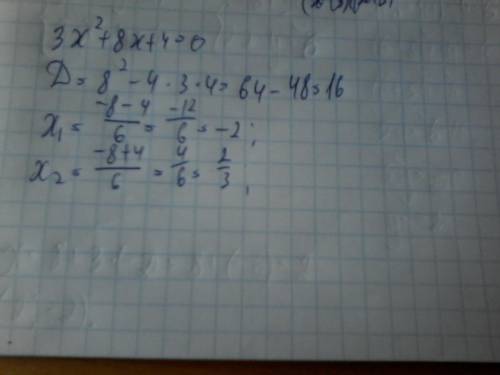 3x²+8x+4=0
D=8²-4·3·4=64-48=16
x₁=(-8-4)/6=(-12)/6=-2;
x₂=(-8+4)/6=4/6=2/3;